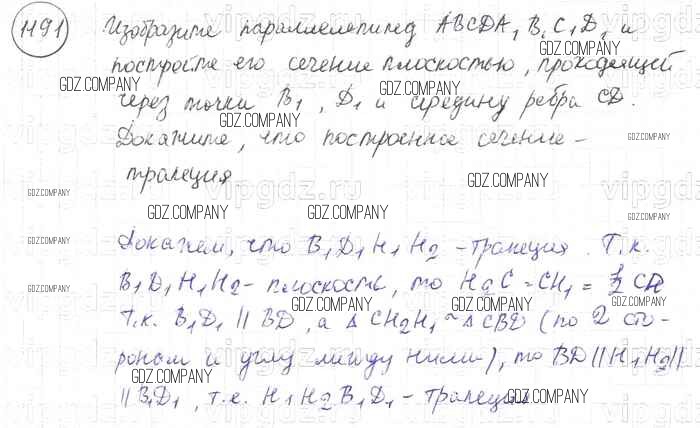 1191
Изобразите параллелепипед ABCDA₁B₁C₁D₁ и
постройте его сечение плоскостью, проходящей
через точки B₁, D₁ и середину ребра CD.
Докажите, что построенное сечение -
трапеция
Докажем, что B₁D₁H₁H₂ - трапеция. Т.к.
B₁D₁H₁H₂ - плоскость, то H₂C = CH₁ = 1/2 CD
Т.к. B₁D₁ || BD, а Δ CH₂H₁ ~ Δ CBD (по 2 сто-
ронам и углу между ними), то BD || H₁H₂ ||
|| B₁D₁, т.е. H₁H₂B₁D₁ - трапеция
GDZ.COMPANY
vipgdz.ru